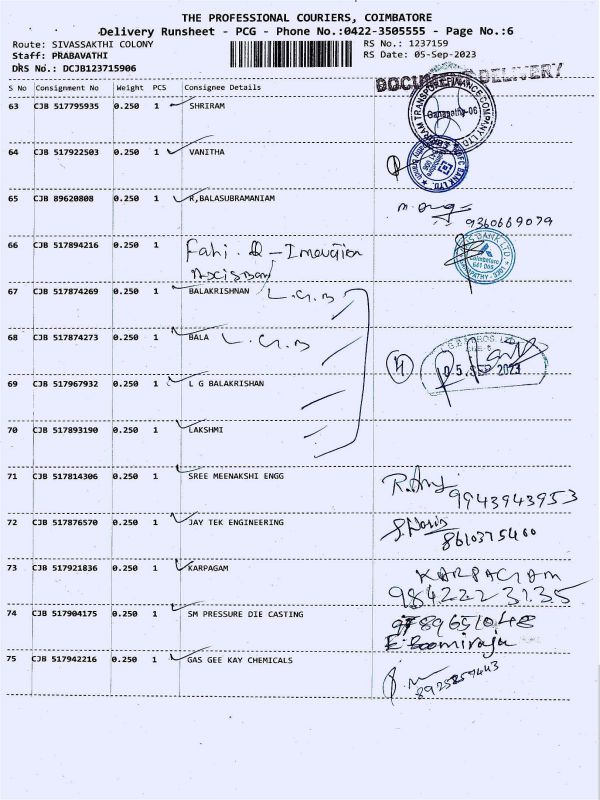 THE PROFESSIONAL COURIERS, COIMBATORE
Delivery Runsheet - PCG - Phone No.:0422-3505555 - Page No.:6
Route: SIVASSAKTHI COLONY RS No.: 1237159
Staff: PRABAVATHI RS Date: 05-Sep-2023
DRS No.: DCJB123715906
DOCUMENT DELIVERY
S No Consignment No Weight PCS Consignee Details
63 CJB 517795935 0.250 1 SHRIRAM
SHRIRAM TRANSPORT FINANCE COMPANY LTD
Ganapathy-06
64 CJB 517922503 0.250 1 VANITHA
HDFC BANK LTD.
65 CJB 89620808 0.250 1 R,BALASUBRAMANIAM
9360669079
66 CJB 517894216 0.250 1
BANK LTD.
Coimbatore
641 006
67 CJB 517874269 0.250 1 BALAKRISHNAN L.G.B
68 CJB 517874273 0.250 1 BALA L.G.B
4
BROS. LTD
05 SEP 2023
69 CJB 517967932 0.250 1 L G BALAKRISHAN
70 CJB 517893190 0.250 1 LAKSHMI
71 CJB 517814306 0.250 1 SREE MEENAKSHI ENGG
9943943953
72 CJB 517876570 0.250 1 JAY TEK ENGINEERING
8610375400
73 CJB 517921836 0.250 1 KARPAGAM KARPAGAM
9842223135
74 CJB 517904175 0.250 1 SM PRESSURE DIE CASTING
E. Boomiraja
75 CJB 517942216 0.250 1 GAS GEE KAY CHEMICALS
8925859443